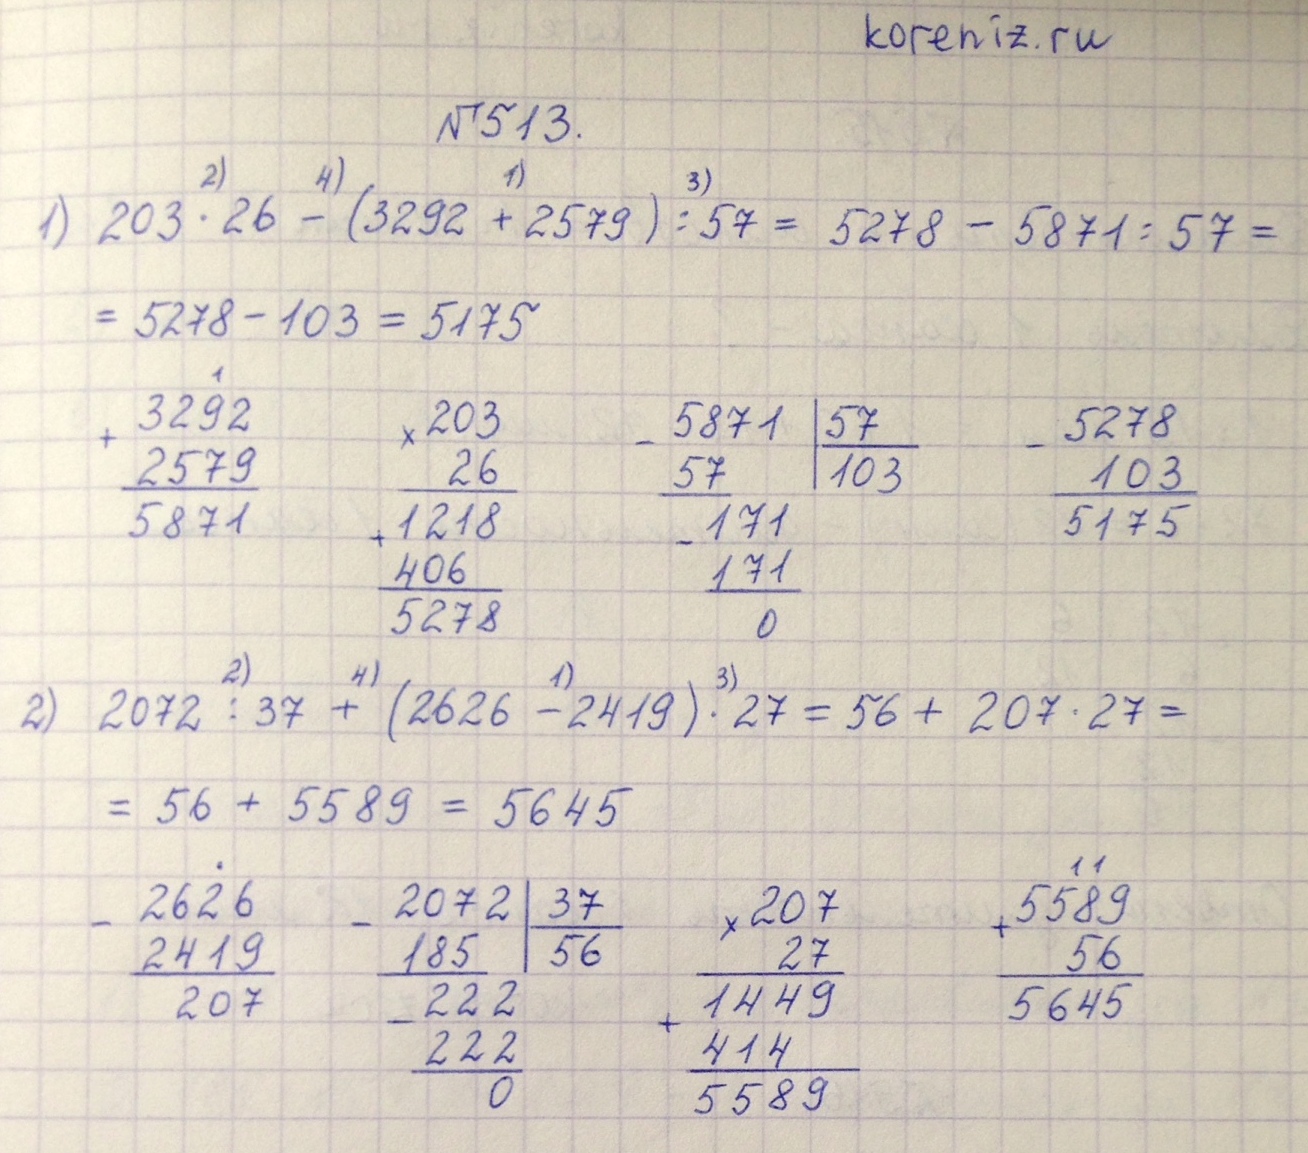 koreniz.ru
№513.
2) 4) 1) 3)
1) 203 · 26 - (3292 + 2579) : 57 = 5278 - 5871 : 57 =
= 5278 - 103 = 5175
1
+ 3292
2579
5871
× 203
26
+ 1218
406
5278
- 5871 | 57
57 | 103
- 171
171
0
- 5278
103
5175
2) 4) 1) 3)
2) 2072 : 37 + (2626 - 2419) · 27 = 56 + 207 · 27 =
= 56 + 5589 = 5645
.
- 2626
2419
207
- 2072 | 37
185 | 56
- 222
222
0
× 207
27
+ 1449
414
5589
11
+ 5589
56
5645